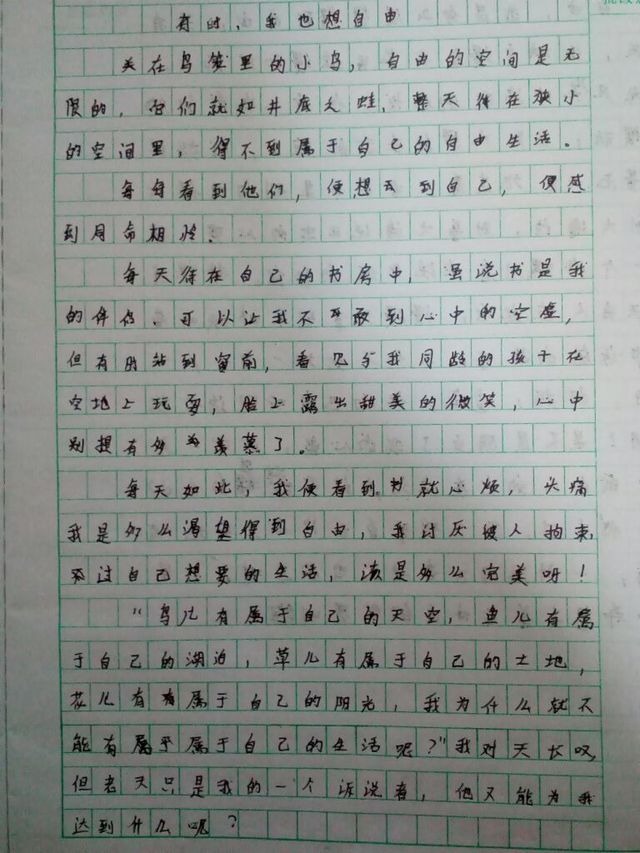 有时,我也想自由
关在鸟笼里的小鸟,自由的空间是无
限的,它们就如井底之蛙,整天待在狭小
的空间里,得不到属于自己的自由生活。
每每看到他们,便想去到自己,便感
到同命相怜.
每天待在自己的书房中,虽说书是我
的伴侣.可以让我不再感到心中的空虚,
但有时站到窗前,看见与我同龄的孩子在
空地上玩耍,脸上露出甜美的微笑,心中
别提有多为羡慕了。
每天如此,我便看到书就心烦,头痛
我是多么渴望得到自由,我讨厌被人拘束
过自己想要的生活,该是多么完美呀!
“鸟儿有属于自己的天空,鱼儿有属
于自己的湖泊,草儿有属于自己的土地,
花儿有属于自己的阳光,我为什么就不
能有属于自己的生活呢?”我对天长叹,
但老天只是我的一个诉说者,他又能为我
达到什么呢?